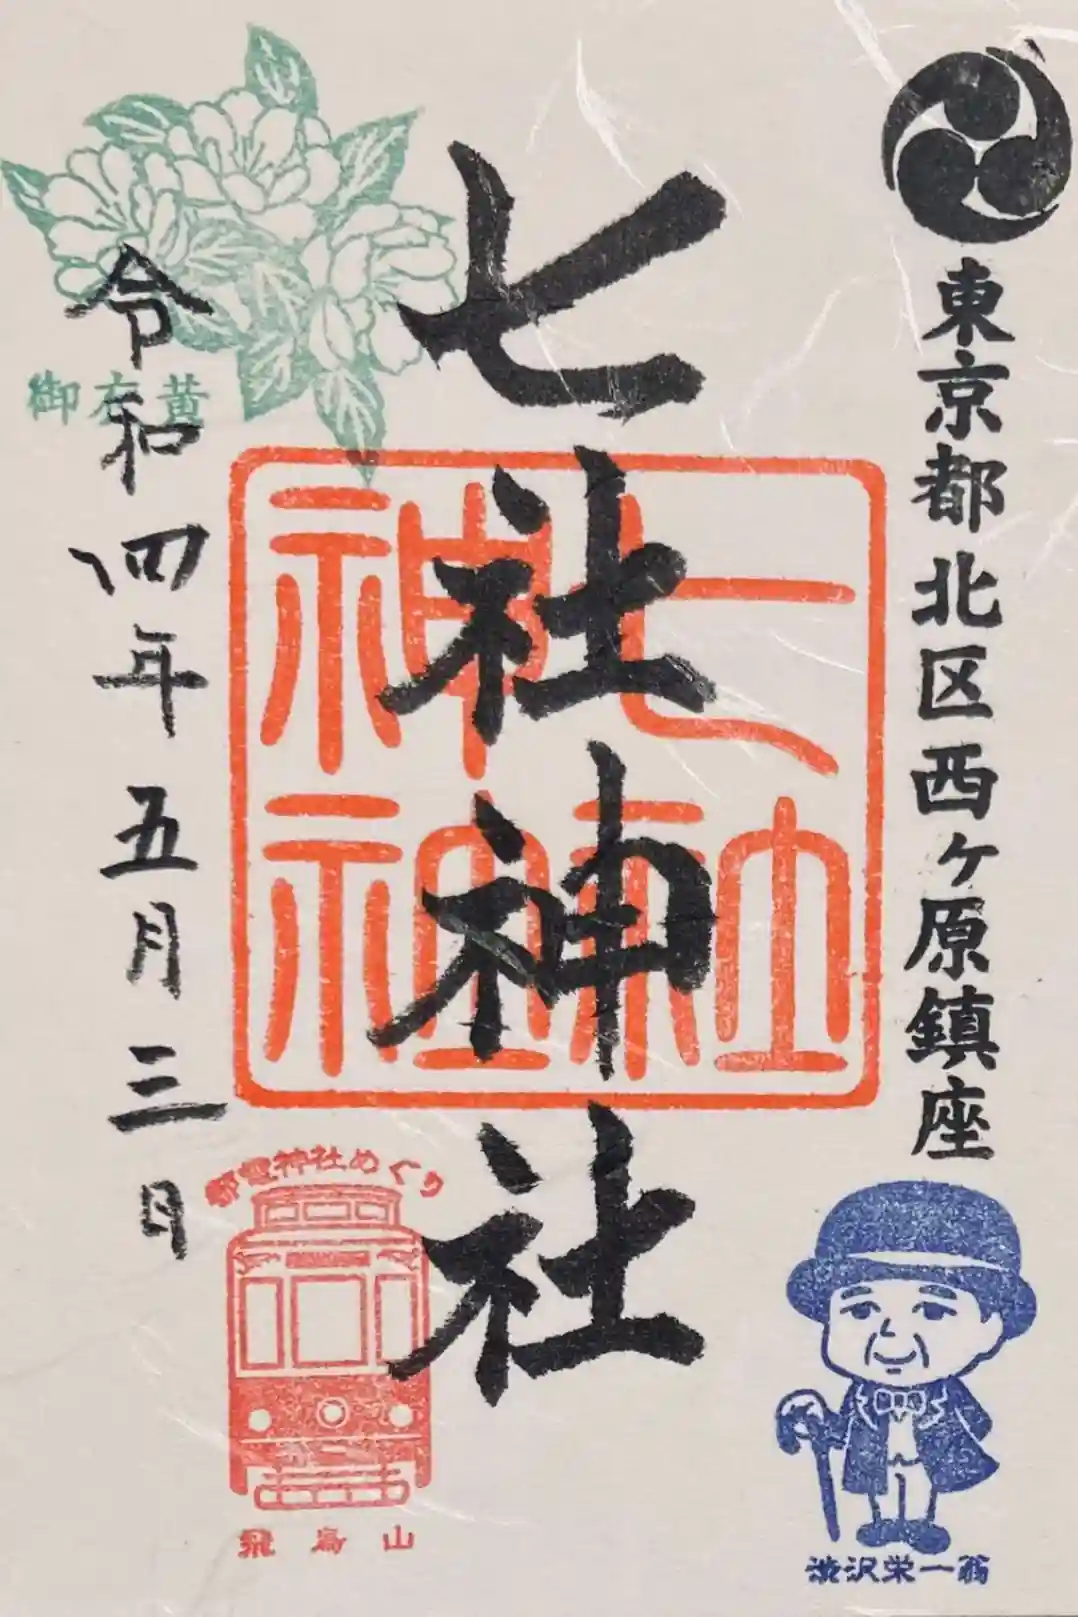 東京都北区西ヶ原鎮座
七社神社
七社
神社
令和四年五月三日
御衣黄
都電神社めぐり
飛鳥山
渋沢栄一翁